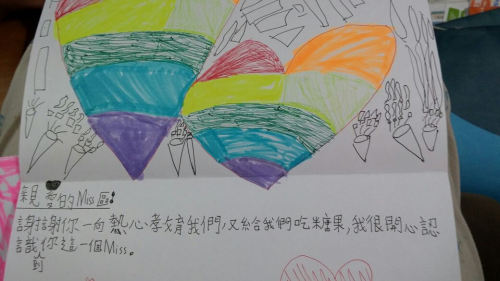 親愛的Miss區:
謝謝你一向熱心孝攵育我們,又給我們吃糖果,我很開心認
識你這一個Miss。
到